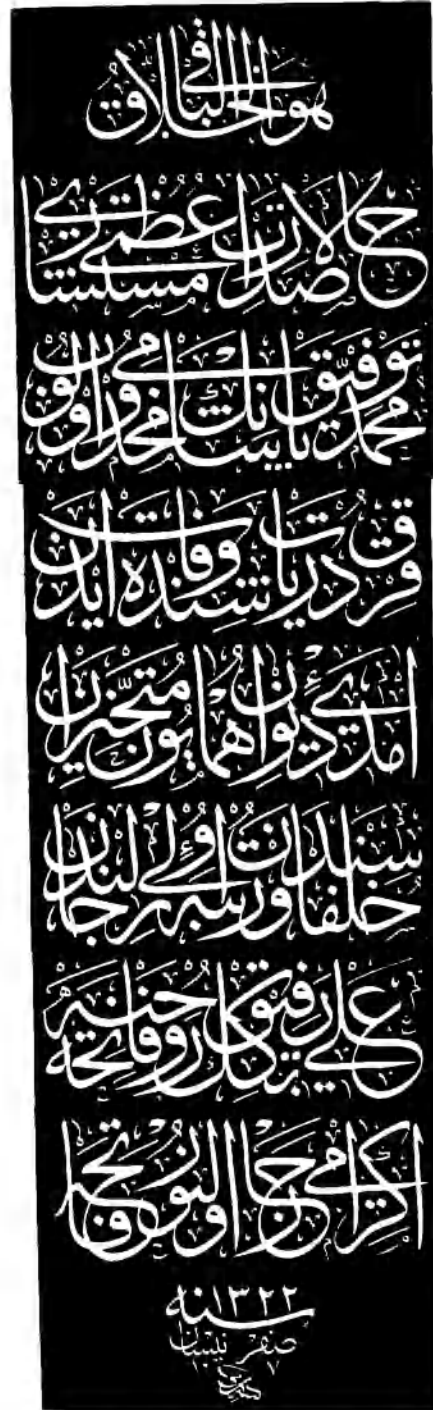 هو الخلاق الباقي
حالا صدارت عظمى مستشاری
محمد توفيق پاشانك مخدومی اولوب
قرق درت ياشنده وفات ايدن
آمدئ ديوان همايون متحيزان
خلفاسندن و رتبه اولى رجالندن
علی رفيق بك روحنه فاتحه
اكرامی رجا اولنور فاتحه
سنه ١٣٢٢
صفر نيسان